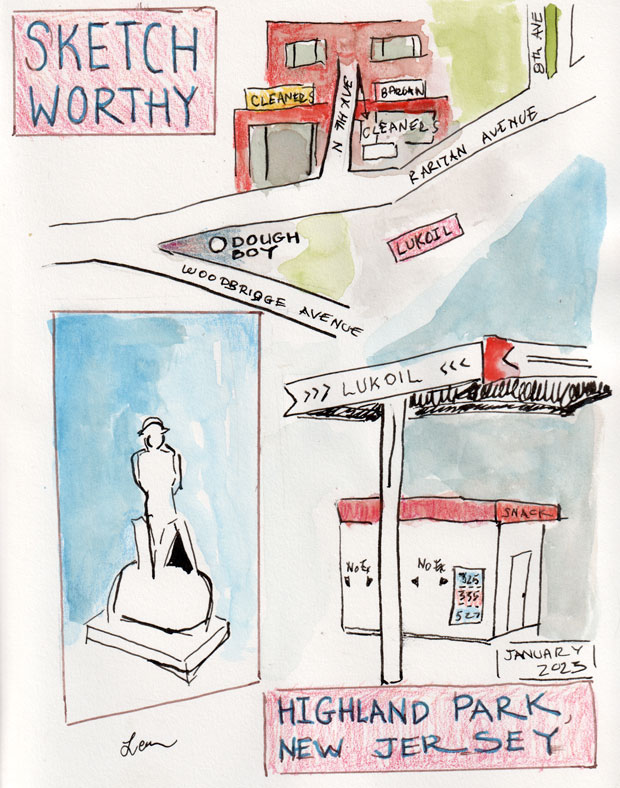 SKETCH
WORTHY
8th AVE
CLEANERS
N 7th AVE
BARGAN
CLEANERS
RARITAN AVENUE
LUKOIL
DOUGH
BOY
WOODBRIDGE AVENUE
>>> LUKOIL <<<
SNACK
No Ex
No Ex
325
335
527
JANUARY
2023
HIGHLAND PARK,
NEW JERSEY